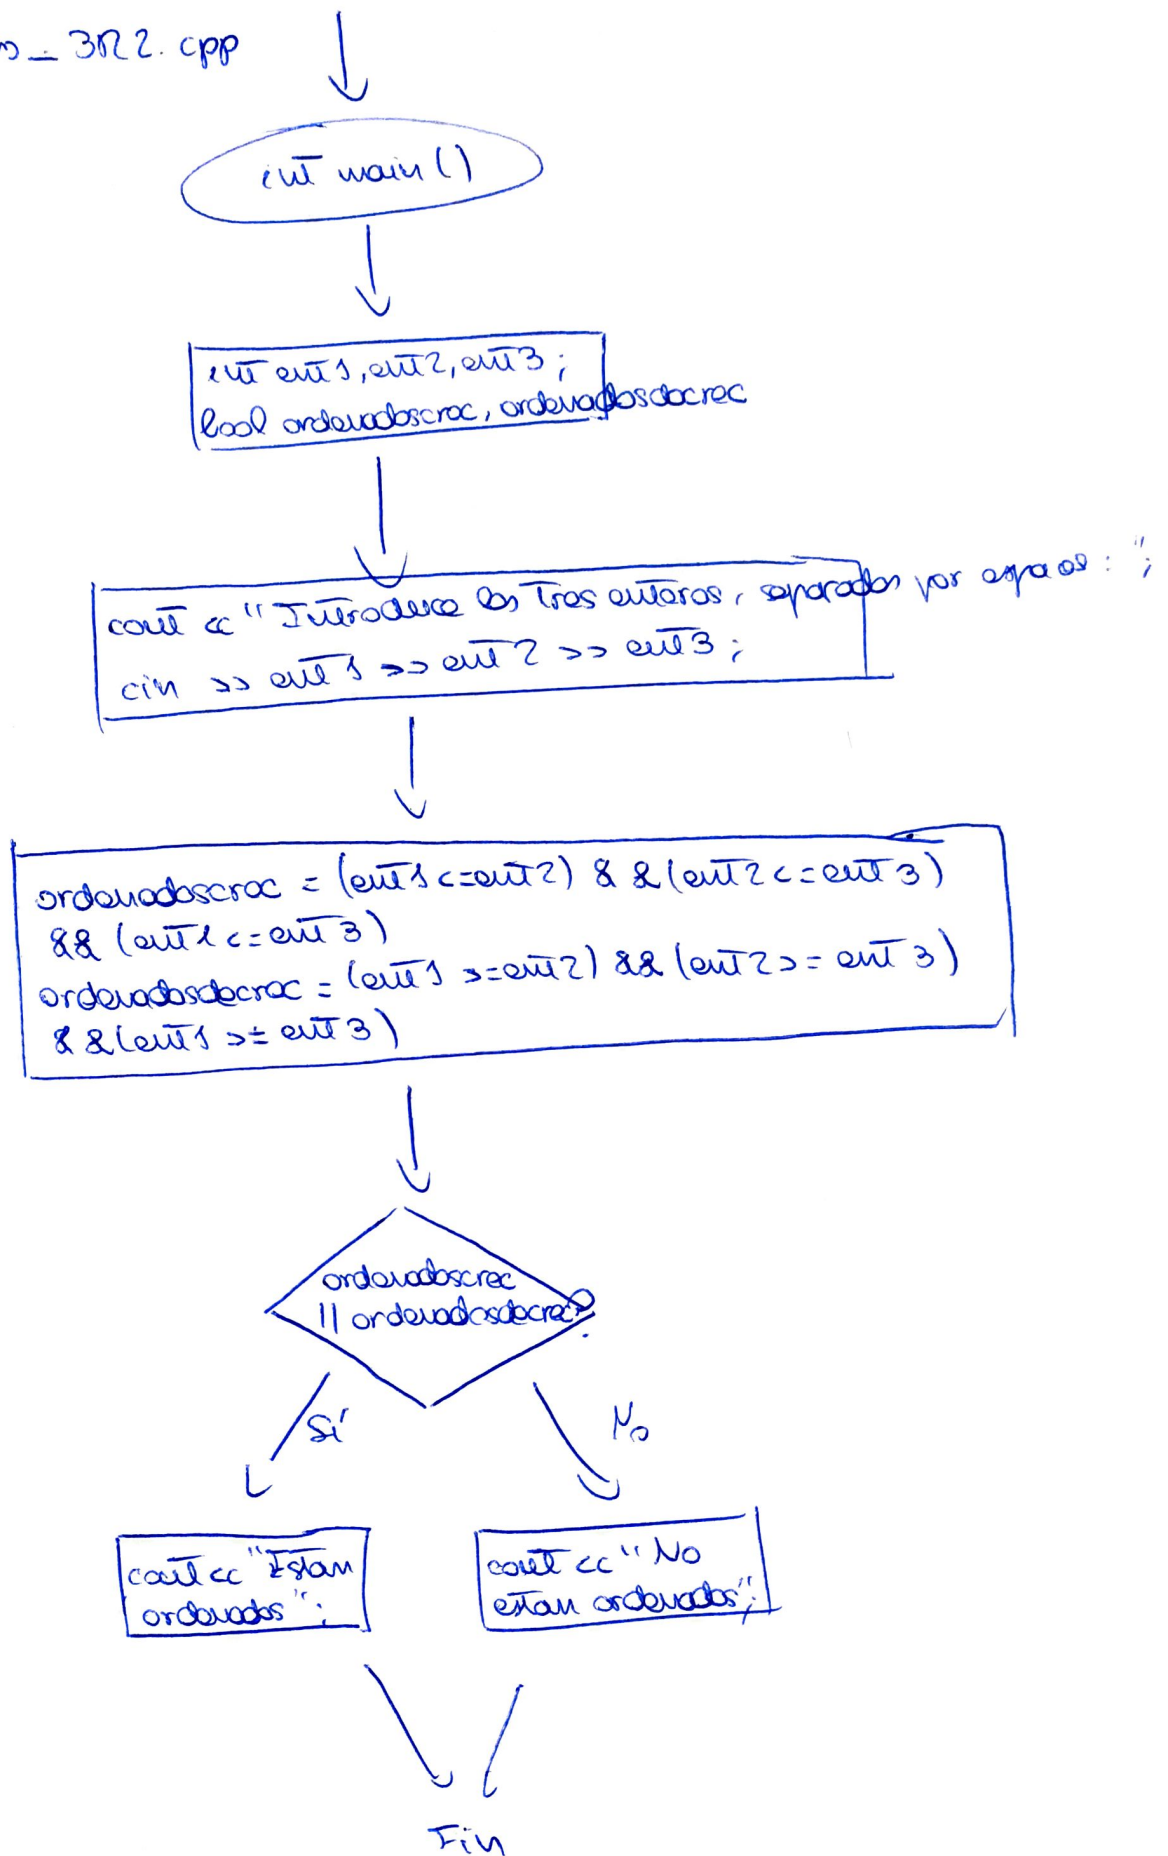 _ 3R2. cpp
int main()
int ent1, ent2, ent3;
bool ordenadoscrec, ordenadosdecrec
cout << "Introduce los tres enteros, separados por espacios: ";
cin >> ent1 >> ent2 >> ent3;
ordenadoscrec = (ent1 <= ent2) && (ent2 <= ent3)
&& (ent1 <= ent3)
ordenadosdecrec = (ent1 >= ent2) && (ent2 >= ent3)
&& (ent1 >= ent3)
ordenadoscrec
|| ordenadosdecrec?
Sí
No
cout << "Estan
ordenados";
cout << "No
estan ordenados";
Fin